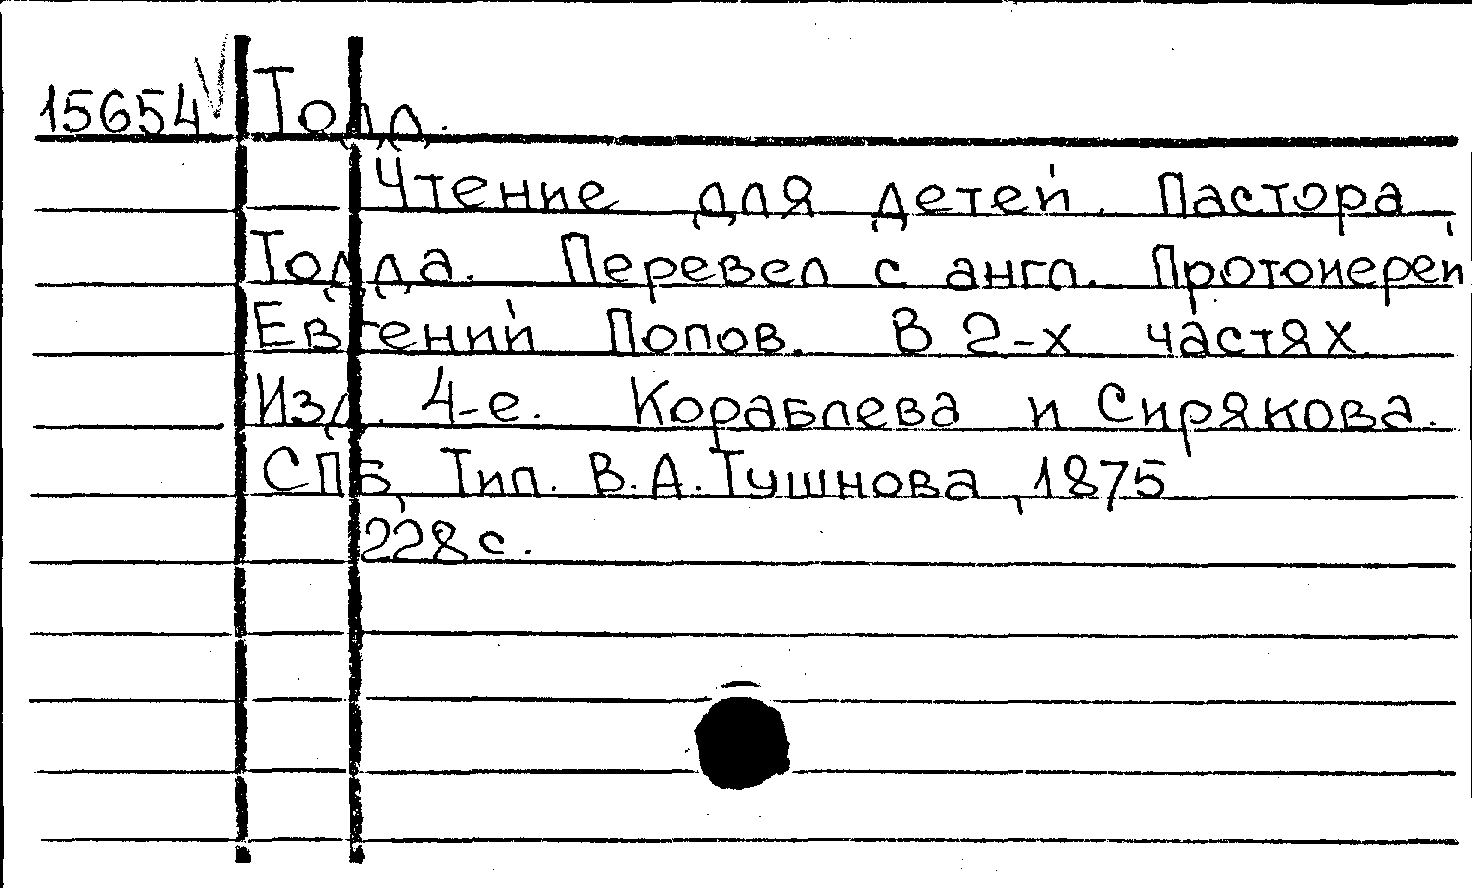 15654 Тодд.
Чтение для детей. Пастора
Тодда. Перевел с англ. Протоиерей
Евгений Попов. В 2-х частях.
Изд. 4-е. Кораблева и Сирякова.
СПБ, Тип. В.А. Тушнова, 1875
228 с.